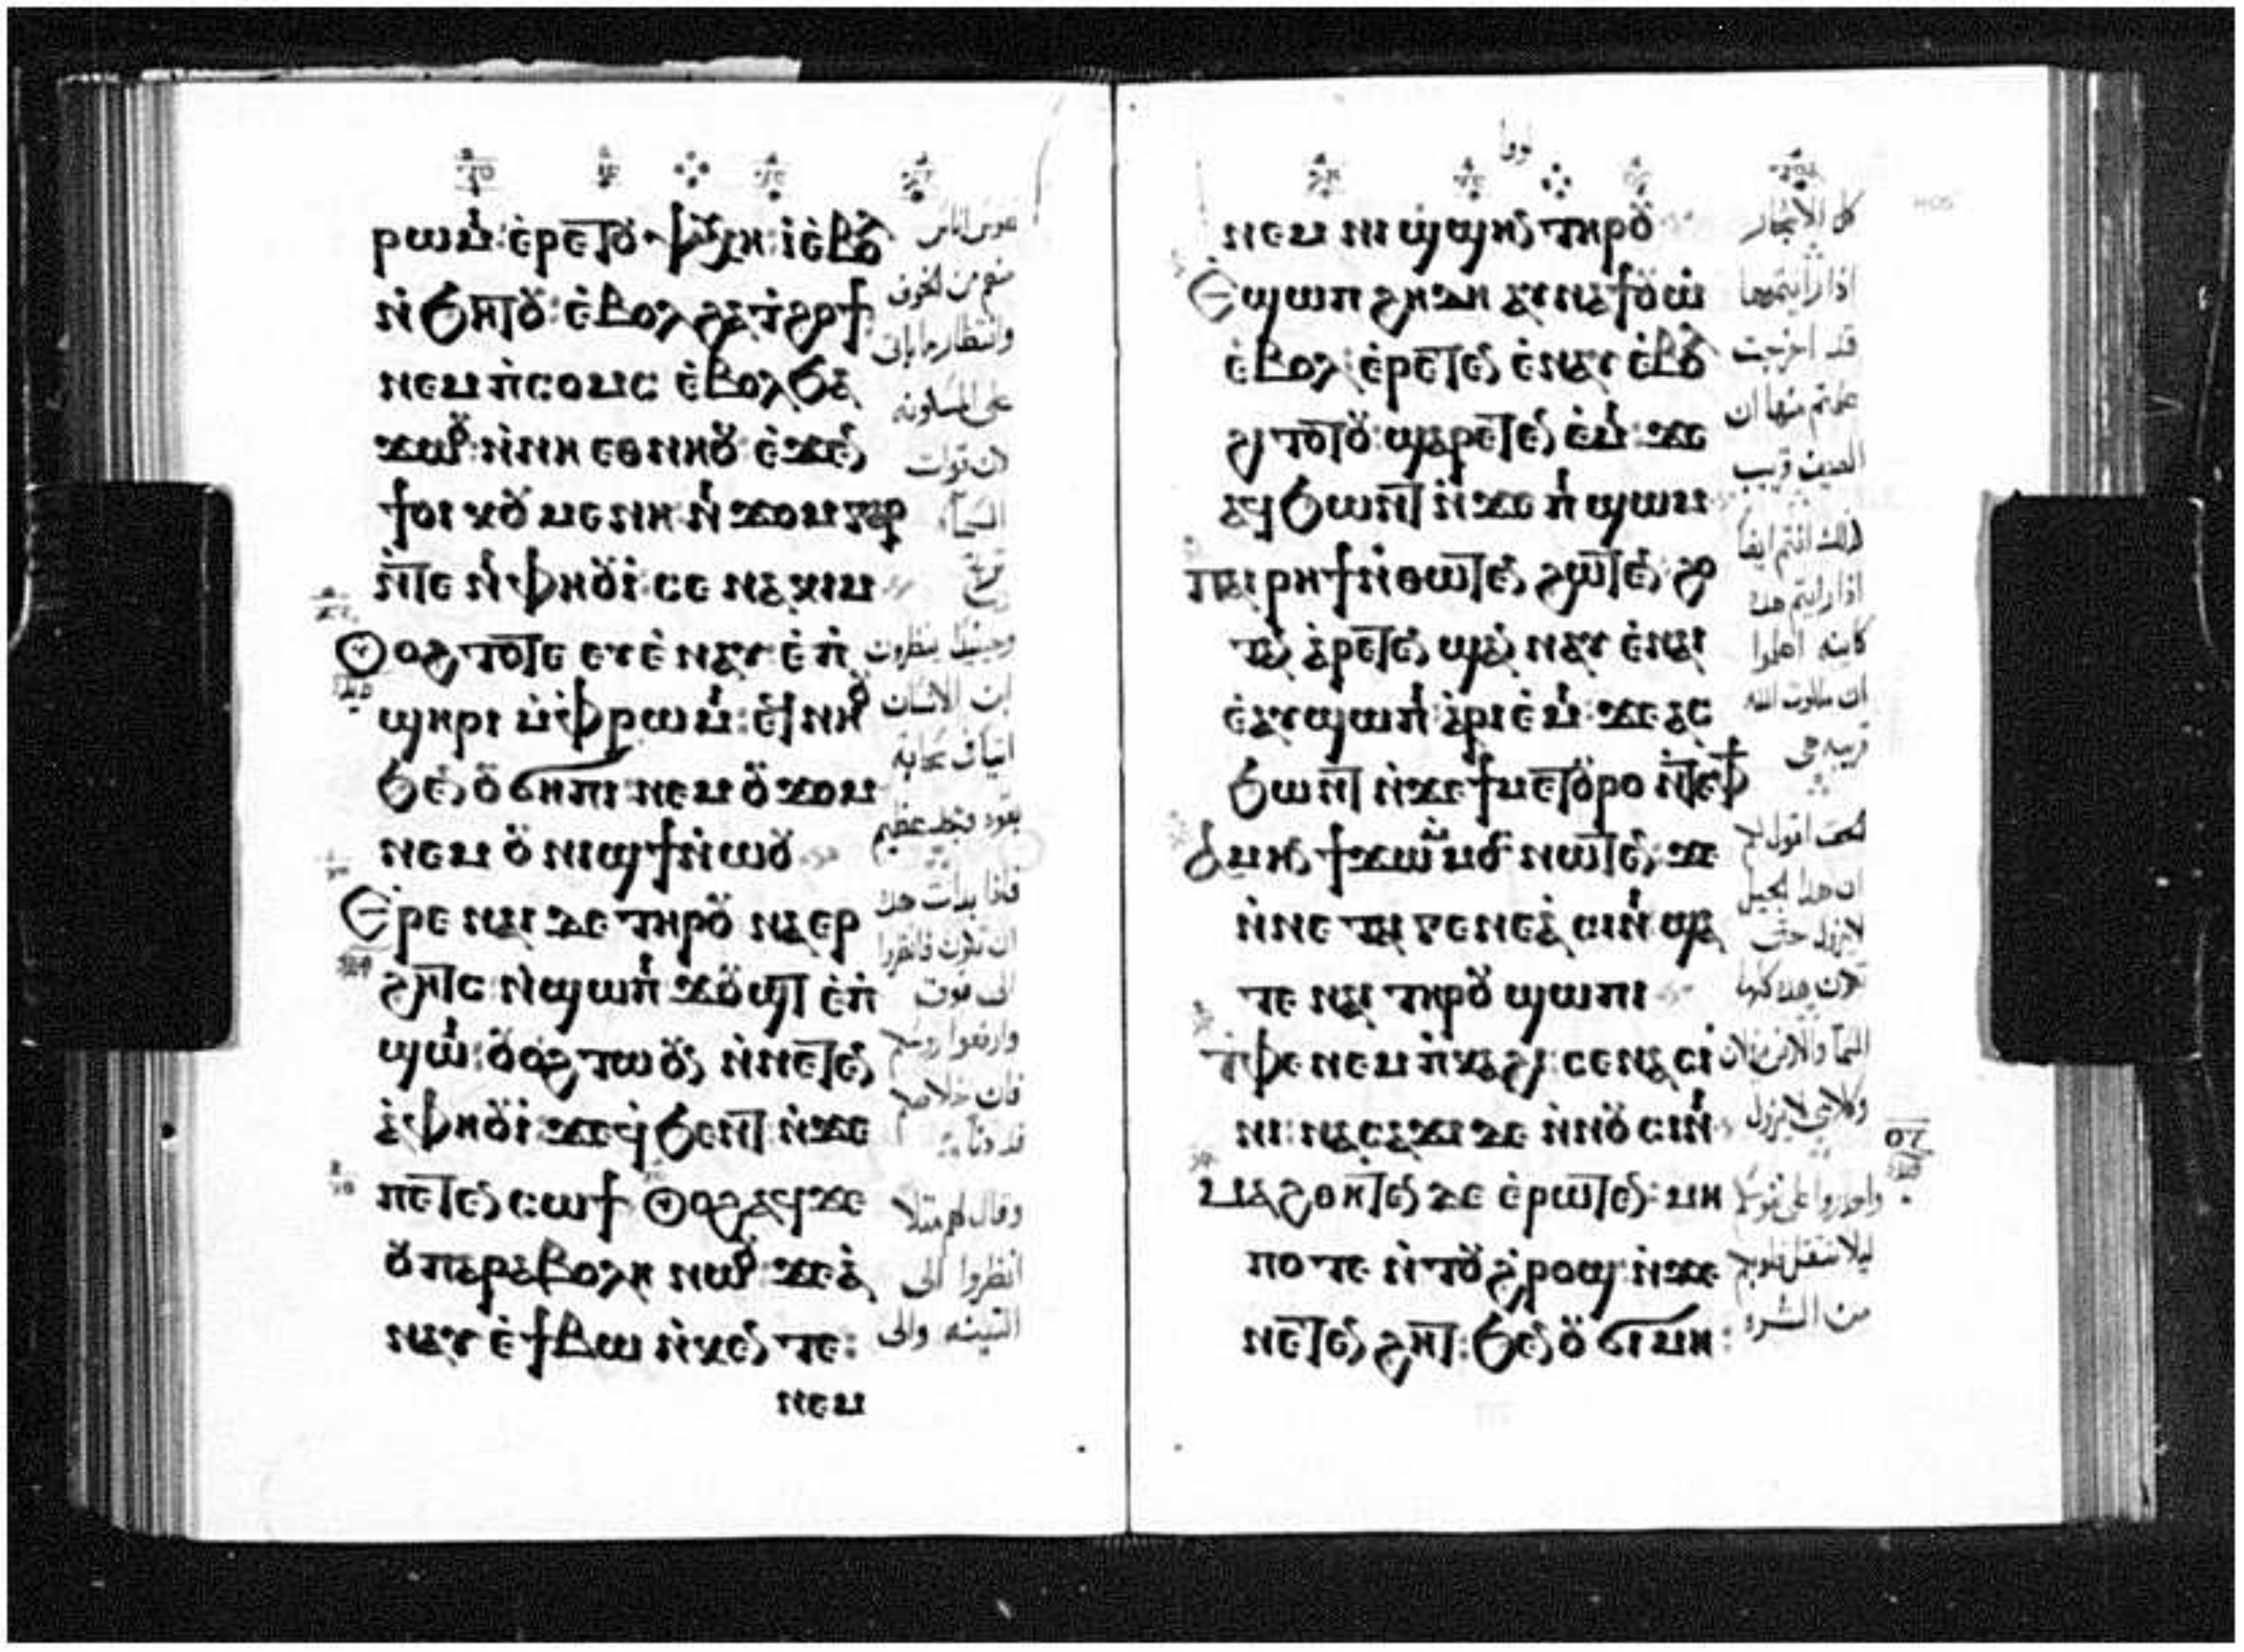 ⲣⲱⲙⲓ: ⲉ̀ⲣⲉⲧⲟⲩ ⲯⲩⲭⲏ: ⲓ̀ ⲉ̀ⲃⲟⲗ
ⲛ̀ϧⲏⲧⲟⲩ: ⲉ̀ⲃⲟⲗ ϩⲁ ⲧ̀ϩⲟϯ
ⲛⲉⲙ ⲡ̀ⲥⲟⲙⲥ ⲉ̀ⲃⲟⲗ ϧⲁ
ϫⲱⲟⲩ: ⲛ̀ⲛⲏ ⲉⲑⲛⲏⲟⲩ ⲉ̀ϫⲉⲛ
ϯⲟⲓⲕⲟⲩⲙⲉⲛⲏ ⲛⲓ ϫⲟⲙ ⲅⲁⲣ
ⲛ̀ⲧⲉ ⲛⲓ ⲫⲏⲟⲩⲓ̀: ⲥⲉ ⲛⲁ ⲕⲓⲙ
Ⲟⲩⲟϩ ⲧⲟⲧⲉ ⲉⲩⲉ̀ ⲛⲁⲩ ⲉ̀ⲡ̀
ϣⲏⲣⲓ ⲙ̀ⲫ̀ⲣⲱⲙⲓ: ⲉϥⲛⲏⲟⲩ
ϧⲉⲛ ⲟⲩ ϭⲏⲡⲓ: ⲛⲉⲙ ⲟⲩ ϫⲟⲙ
ⲛⲉⲙ ⲟⲩ ⲛⲓϣϯ ⲛ̀ⲱⲟⲩ
Ⲉⲣⲉ ⲛⲁⲓ ⲇⲉ ⲧⲏⲣⲟⲩ ⲛⲁ ⲉⲣ
ϩⲏⲧⲥ ⲛ̀ϣⲱⲡⲓ ϫⲟⲩϣⲧ ⲉ̀ⲡ̀
ϣⲱⲓ: ⲟⲩⲟϩ ⲧⲱⲟⲩⲛ ⲛ̀ⲛⲉⲧⲉⲛ
ⲁ̀ⲫⲏⲟⲩⲓ̀: ϫⲉ ϥ̀ϧⲉⲛⲧ ⲛ̀ϫⲉ
ⲡⲉⲧⲉⲛ ⲥⲱϯ Ⲟⲩⲟϩ ⲁϥϫⲉ
ⲟⲩ ⲡⲁⲣⲁⲃⲟⲗⲏ ⲛⲱⲟⲩ: ϫⲉ ⲁ̀
ⲛⲁⲩ ⲉ̀ϯⲃⲱ ⲛ̀ⲕⲉⲛⲧⲉ:
ⲛⲉⲙ
منهم من الخوف
وانتظار ما ياتى
على المسكونه
لان قوات
السما
وحينيذ ينظرون
ابن الانسان
بقوه ومجد عظيم
فاذا بدات هذه
ان تكون فانظروا
الى فوق
وارفعوا روسكم
فان خلاصكم
قد دنا
وقال لهم مثلا
انظروا الى
التينه والى
لوقا
ⲛⲉⲙ ⲛⲓ ϣϣⲏⲛ ⲧⲏⲣⲟⲩ
Ⲉϣⲱⲡ ϩⲏⲇⲏ ⲁⲩⲛⲁ ϯⲟⲩⲱ
ⲉ̀ⲃⲟⲗ: ⲉ̀ⲣⲉⲧⲉⲛ ⲉ̀ⲛⲁⲩ ⲉ̀ⲃⲟⲗ
ϩⲓⲧⲟⲧⲟⲩ: ϣⲁⲣⲉⲧⲉⲛ ⲉ̀ⲙⲓ: ϫⲉ
ⲁϥϧⲱⲛⲧ ⲛ̀ϫⲉ ⲡⲓ ϣⲱⲙ
ⲡⲁⲓ ⲣⲏϯ ⲛ̀ⲑⲱⲧⲉⲛ ϩⲱⲧⲉⲛ: ϩⲟ
ⲧⲁⲛ ⲁ̀ⲣⲉⲧⲉⲛ ϣⲁⲛ ⲛⲁⲩ ⲉ̀ⲛⲁⲓ
ⲉⲩϣⲱⲡⲓ: ⲁ̀ⲣⲓⲉ̀ⲙⲓ: ϫⲉ ⲁⲥ
ϧⲱⲛⲧ ⲛ̀ϫⲉ ϯⲙⲉⲧⲟⲩⲣⲟ ⲛ̀ⲧⲉ ⲫϯ
Ⲁⲙⲏⲛ ϯϫⲱ ⲙ̀ⲙⲟⲥ ⲛⲱⲧⲉⲛ: ϫⲉ
ⲛ̀ⲛⲉ ⲧⲁⲓ ⲅⲉⲛⲉⲁ̀ ⲥⲓⲛⲓ ϣⲁ
ⲧⲉ ⲛⲁⲓ ⲧⲏⲣⲟⲩ ϣⲱⲡⲓ
ⲧ̀ⲫⲉ ⲛⲉⲙ ⲡ̀ⲕⲁϩⲓ: ⲥⲉⲛⲁ ⲥⲓ
ⲛⲓ: ⲛⲁ ⲥⲁϫⲓ ⲇⲉ ⲛ̀ⲛⲟⲩ ⲥⲓⲛⲓ
ⲙⲁϩⲑⲏⲧⲉⲛ ⲇⲉ ⲉ̀ⲣⲱⲧⲉⲛ: ⲙⲏ
ⲡⲟⲧⲉ ⲛ̀ⲧⲟⲩ ϩ̀ⲣⲟϣ ⲛ̀ϫⲉ
ⲛⲉⲧⲉⲛ ϩⲏⲧ: ϧⲉⲛ ⲟⲩ ϭⲓ ⲙⲏ:
كل الاشجار
اذا رايتموها
قد اخرجت
علمتم منها ان
الصيف قريب
كذلك انتم ايضا
اذا رايتم هذه
كاينه اعلموا
ان ملكوت الله
قريبه هى
الحق اقول لكم
ان هذا الجيل
لا يزول حتى
تكون هذه كلها
السما والارض يزولان
وكلامى لا يزول
واحذروا على نفوسكم
ليلا تثقل قلوبكم
من الشره